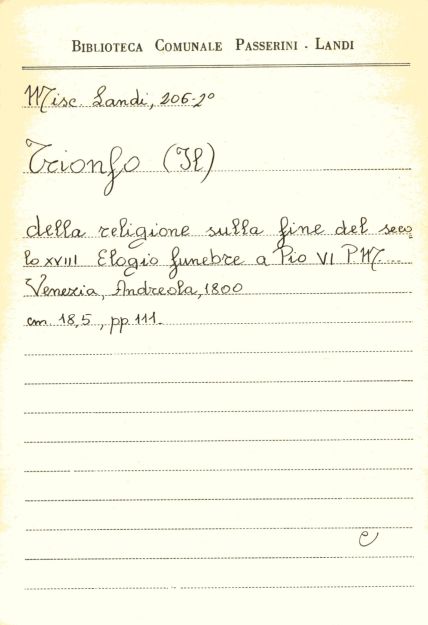 BIBLIOTECA COMUNALE PASSERINI - LANDI
Misc. Landi, 206-2º
Trionfo (Il)
della religione sulla fine del seco
lo XVIII Elogio funebre a Pio VI P.M....
Venezia, Andreola, 1800
cm 18,5, pp 111.
e